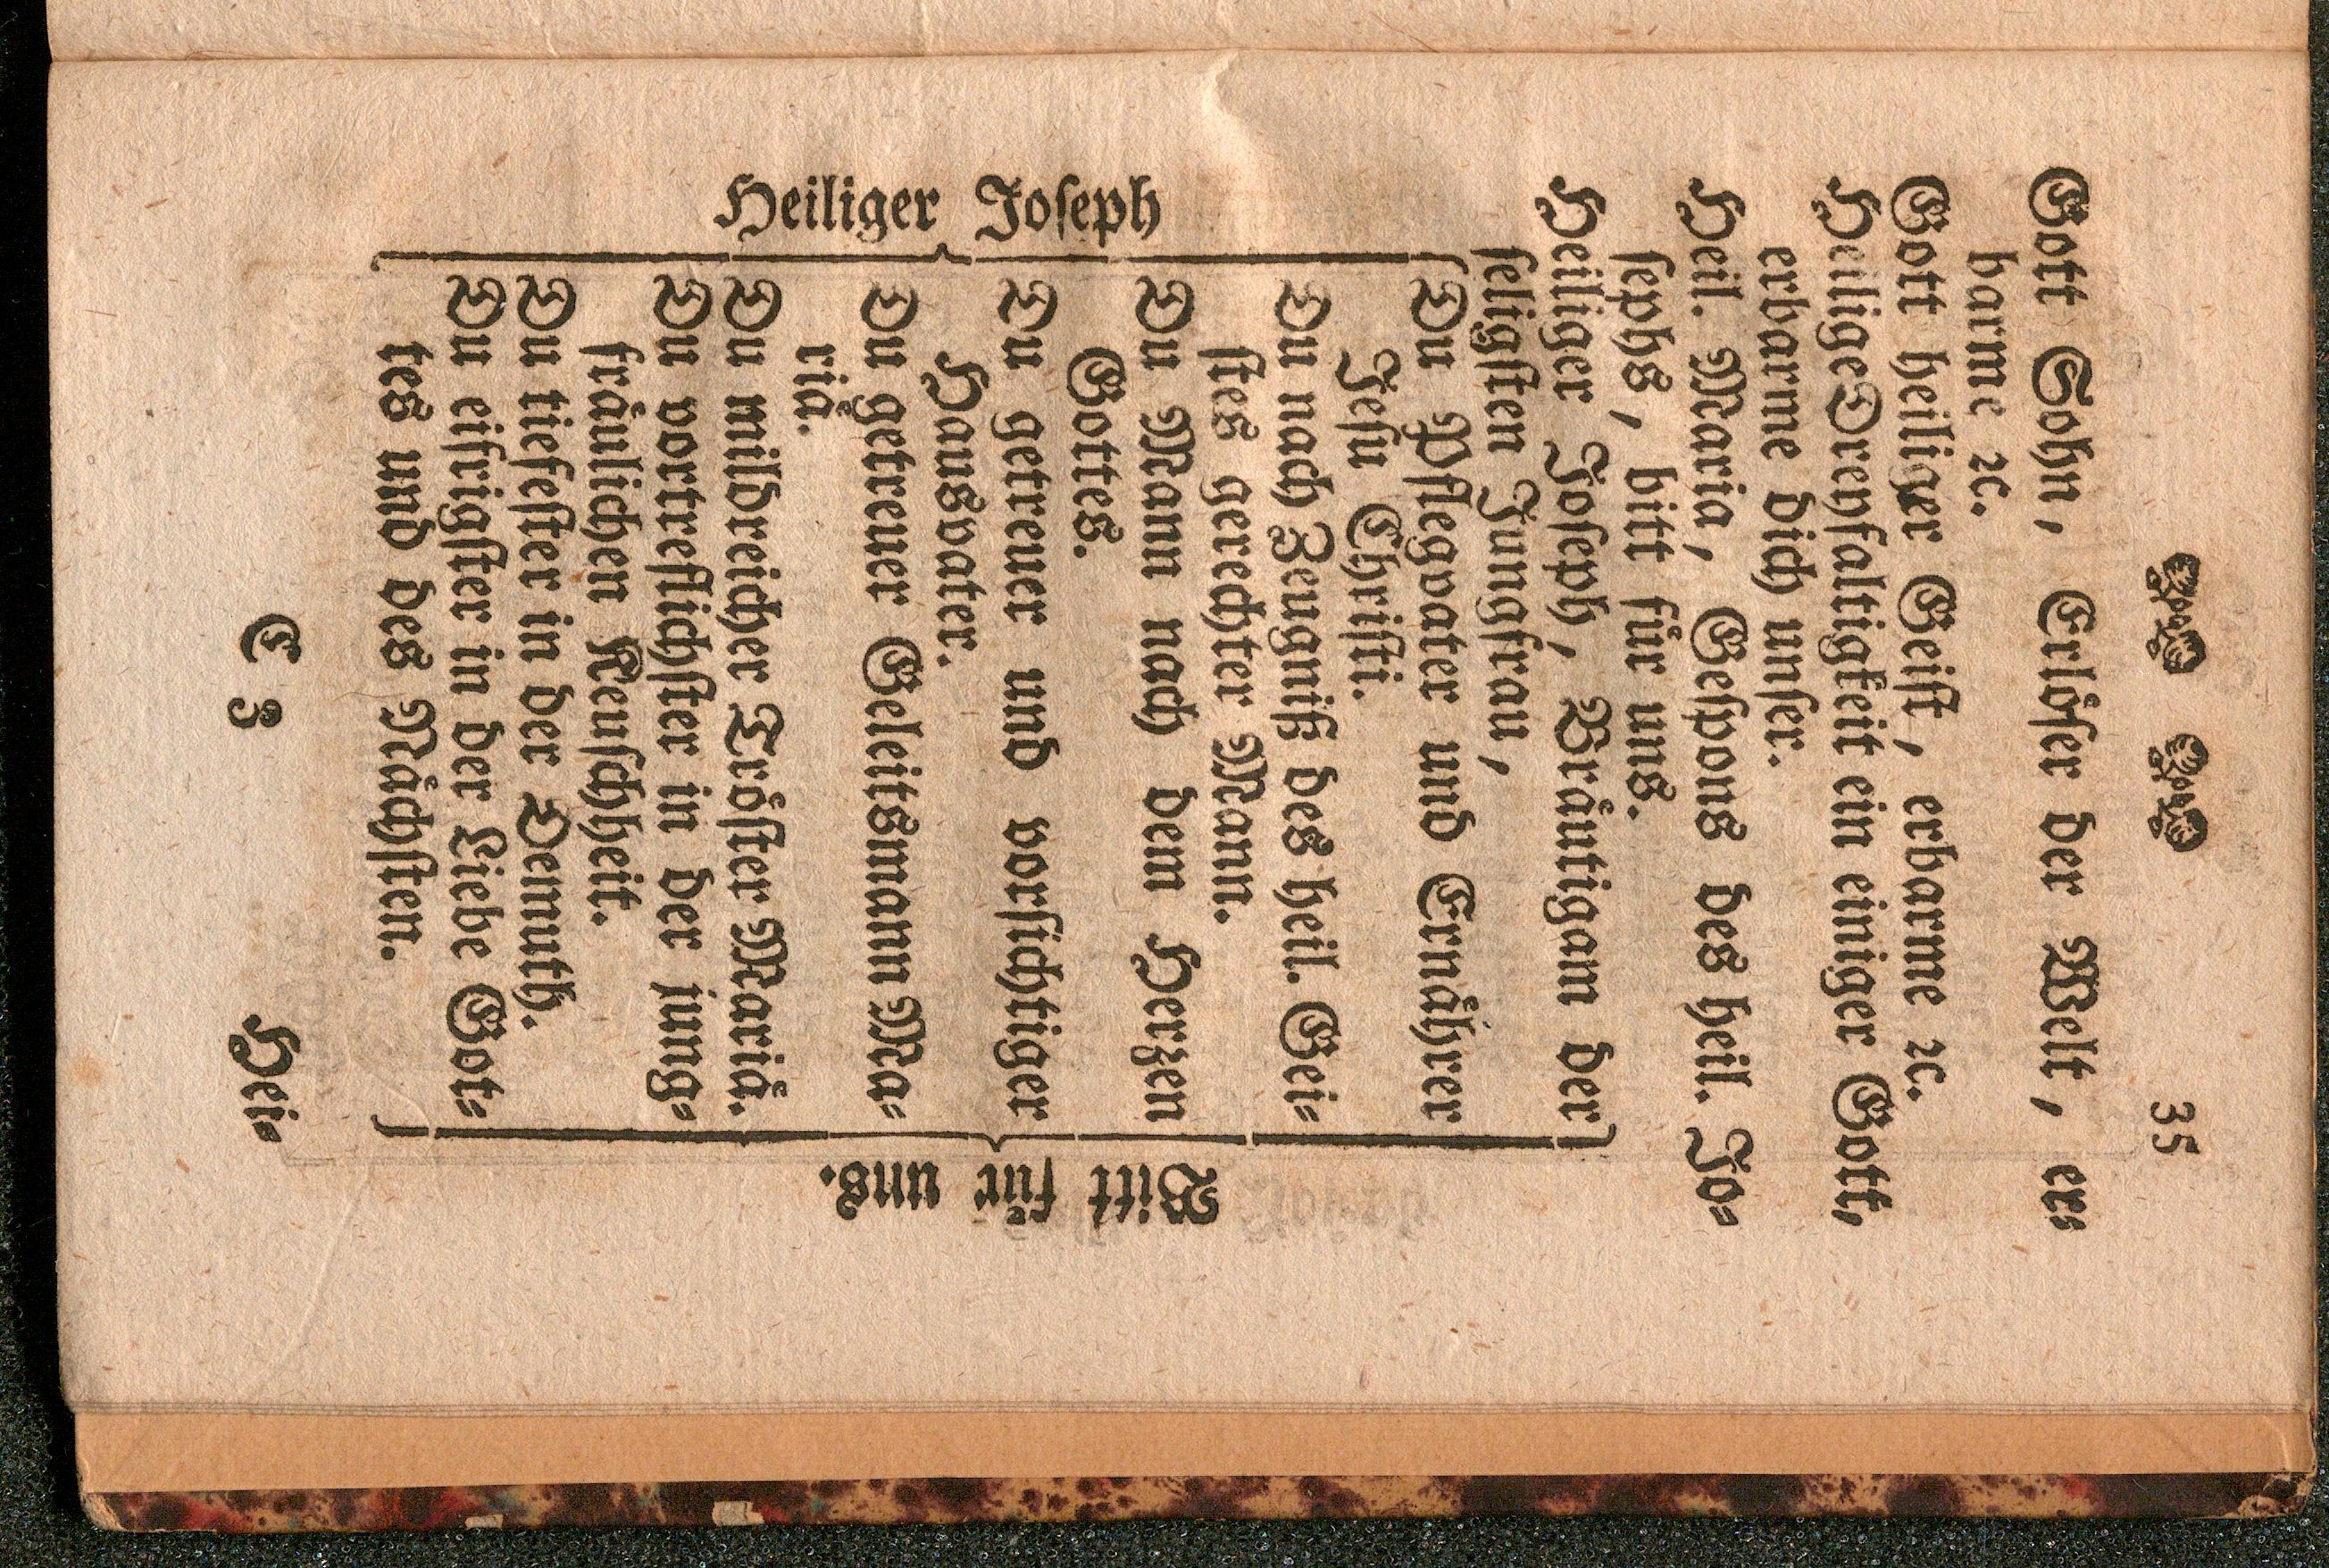 35
Gott Sohn, Erlöser der Welt, er⸗
barme ꝛc.
Gott heiliger Geist, erbarme ꝛc.
Heilige Dreyfaltigkeit ein einiger Gott,
erbarme dich unser.
Heil. Maria, Gespons des heil. Jo⸗
sephs, bitt für uns.
Heiliger Joseph, Bräutigam der
seligsten Jungfrau,
Heiliger Joseph
Du Pflegvater und Ernährer
Jesu Christi.
Du nach Zeugniß des heil. Gei⸗
stes gerechter Mann.
Du Mann nach dem Herzen
Gottes.
Du getreuer und vorsichtiger
Hausvater.
Du getreuer Geleitsmann Ma⸗
riä.
Du mildreicher Tröster Mariä.
Du vortreflichster in der jung⸗
fräulichen Keuschheit.
Du tiefester in der Demuth.
Du eifrigster in der Liebe Got⸗
tes und des Nächsten.
Bitt für uns.
C 3
Hei⸗